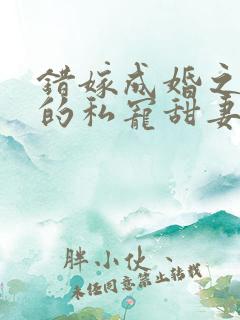 错嫁成婚之
的私宠甜妻
胖小伙、
未经同意禁止转载